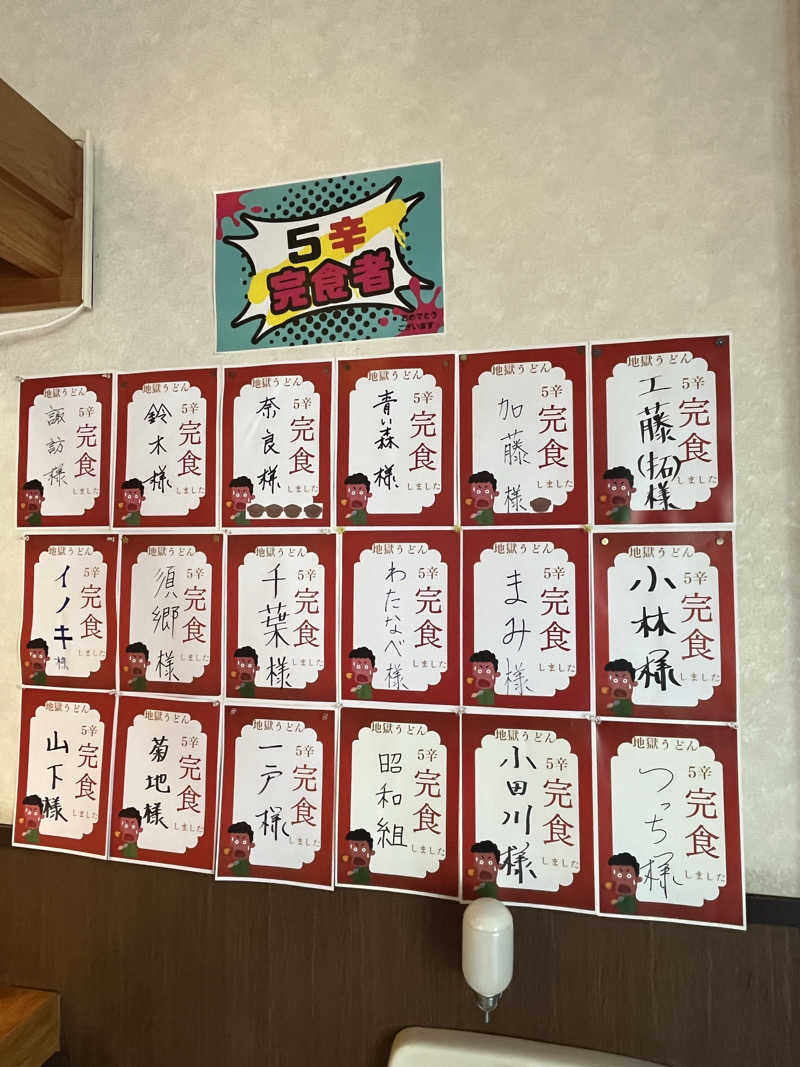 5辛
完食者
おめでとう
ございます
地獄うどん
5辛
完食
しました
諏訪様
地獄うどん
5辛
完食
しました
鈴木様
地獄うどん
5辛
完食
しました
奈良様
地獄うどん
5辛
完食
しました
青い森様
地獄うどん
5辛
完食
しました
加藤様
地獄うどん
5辛
完食
しました
工藤(拓)様
地獄うどん
5辛
完食
しました
イノキ様
地獄うどん
5辛
完食
しました
須郷様
地獄うどん
5辛
完食
しました
千葉様
地獄うどん
5辛
完食
しました
わたなべ様
地獄うどん
5辛
完食
しました
まみ様
地獄うどん
5辛
完食
しました
小林様
地獄うどん
5辛
完食
しました
山下様
地獄うどん
5辛
完食
しました
菊地様
地獄うどん
5辛
完食
しました
一戸様
地獄うどん
5辛
完食
しました
昭和組
地獄うどん
5辛
完食
しました
小田川様
地獄うどん
5辛
完食
しました
つっち様